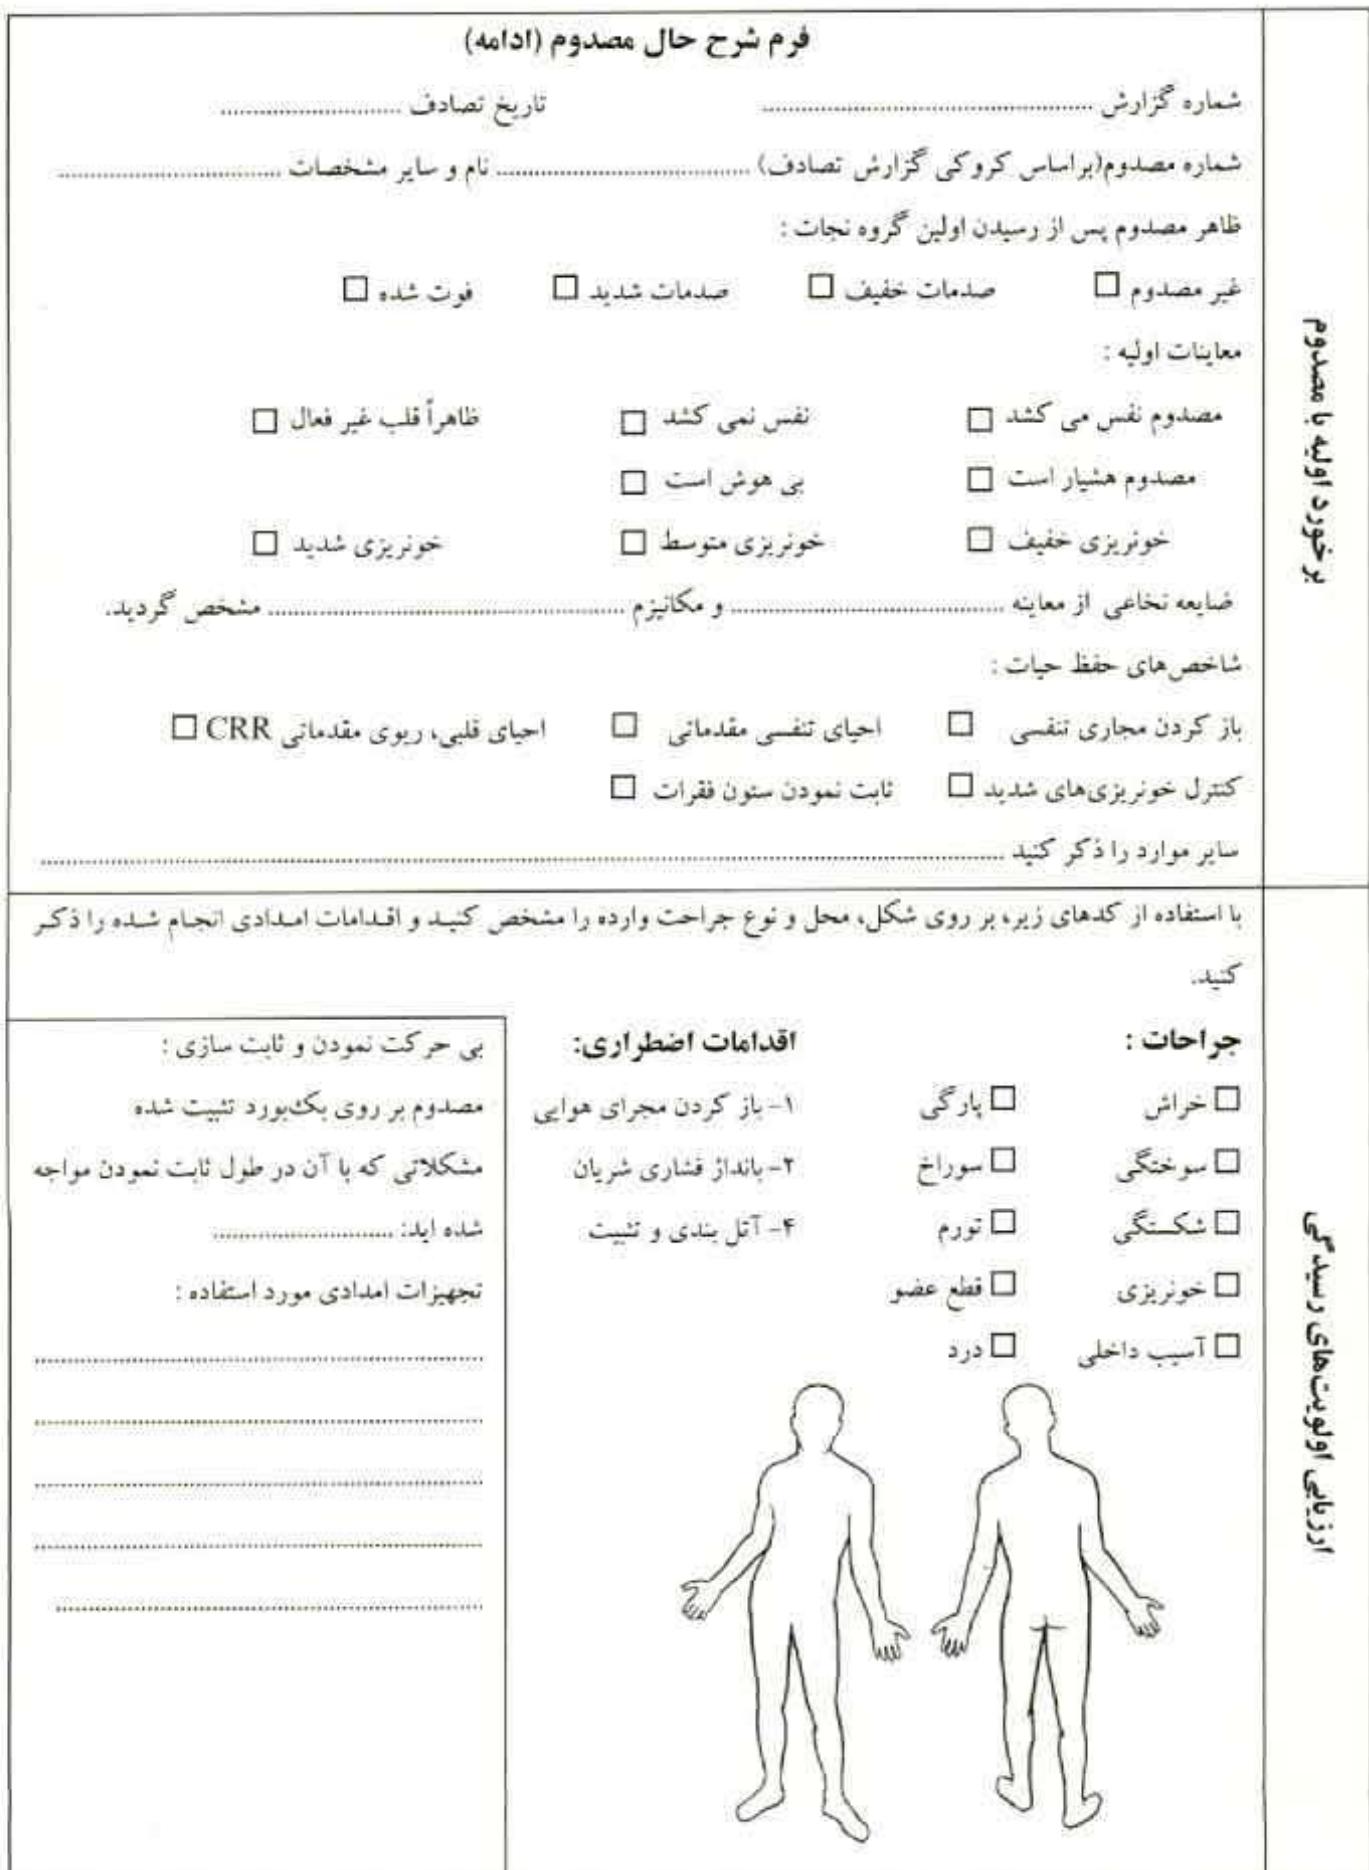 فرم شرح حال مصدوم (ادامه)
شماره گزارش ........................ تاریخ تصادف ........................
شماره مصدوم(براساس کروکی گزارش تصادف) ........................ نام و سایر مشخصات ........................
ظاهر مصدوم پس از رسیدن اولین گروه نجات :
غیر مصدوم □ صدمات خفیف □ صدمات شدید □ فوت شده □
معاینات اولیه :
مصدوم نفس می کشد □ نفس نمی کشد □ ظاهراً قلب غیر فعال □
مصدوم هشیار است □ بی هوش است □
خونریزی خفیف □ خونریزی متوسط □ خونریزی شدید □
ضایعه نخاعی از معاینه ........................ و مکانیزم ........................ مشخص گردید.
شاخص‌های حفظ حیات :
باز کردن مجاری تنفسی □ احیای تنفسی مقدماتی □ احیای قلبی، ریوی مقدماتی CRR □
کنترل خونریزی‌های شدید □ ثابت نمودن ستون فقرات □
سایر موارد را ذکر کنید ........................
برخورد اولیه با مصدوم
با استفاده از کدهای زیر، بر روی شکل، محل و نوع جراحت وارده را مشخص کنید و اقدامات امدادی انجام شده را ذکر
کنید.
جراحات :
□ خراش □ پارگی
□ سوختگی □ سوراخ
□ شکستگی □ تورم
□ خونریزی □ قطع عضو
□ آسیب داخلی □ درد
اقدامات اضطراری:
۱- باز کردن مجرای هوایی
۲- بانداژ فشاری شریان
۴- آتل بندی و تثبیت
بی حرکت نمودن و ثابت سازی :
مصدوم بر روی بک‌بورد تثبیت شده
مشکلاتی که با آن در طول ثابت نمودن مواجه
شده اید: ........................
تجهیزات امدادی مورد استفاده :
........................
........................
........................
........................
........................
ارزیابی اولویت‌های رسیدگی